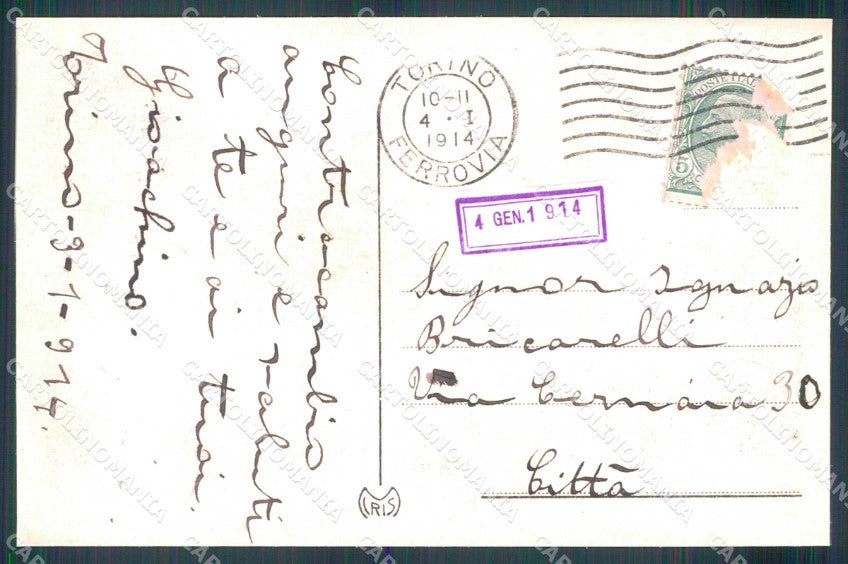 Contraccambio
auguri e saluti
a te e ai tuoi.
Gioachino.
Torino-3-1-914.
TORINO
10-11
4 · I
1914
FERROVIA
POSTE ITAL
5
4 GEN. 1914
Signor Ignazio
Bricarelli
Via Cernaia 30
Città
IRIS
CARTOLINOMANIA